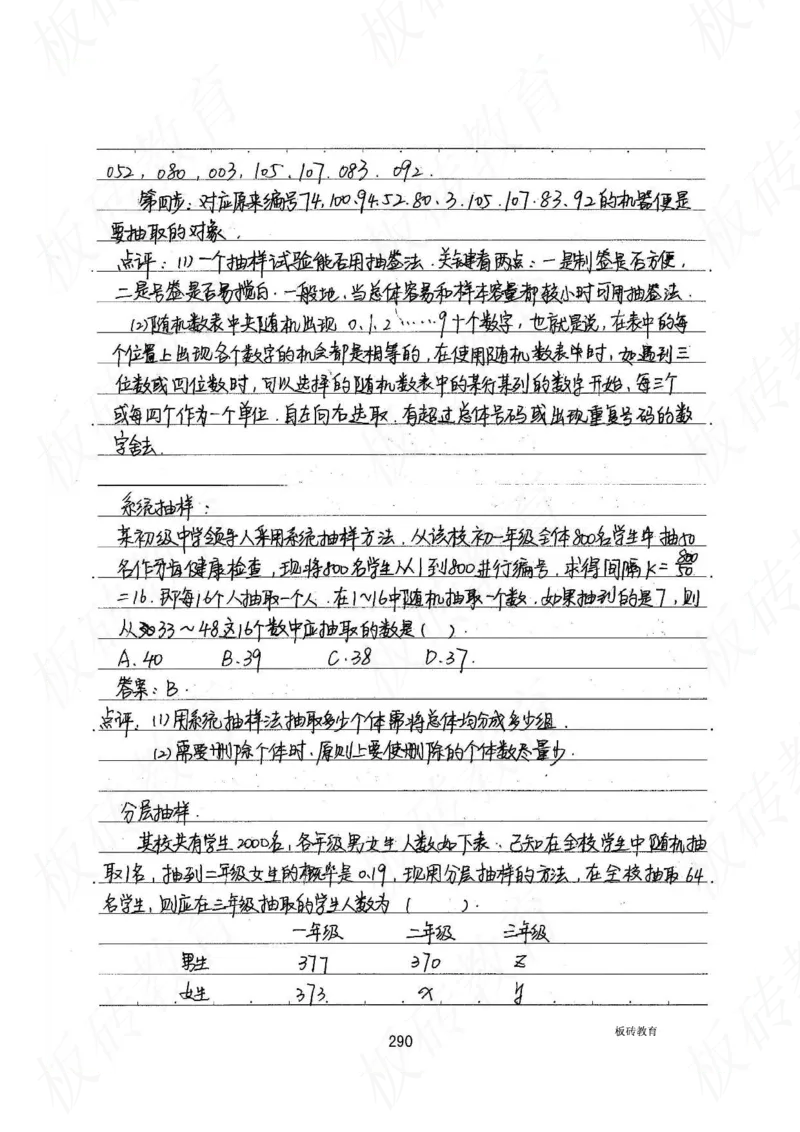 052, 080, 003, 105, 107, 083, 092.
第四步:对应原来编号74,100.94.52.80、3.105.107.83、92的机器便是
要抽取的对象.
点评:(1)一个抽样试验能否用抽签法.关键看两点:一是制签是否方便,
二是号签是否易搅匀.一般地,当总体容易和样本容量都较小时可用抽签法.
(2)随机数表中央随机出现 0.1.2……9十个数字,也就是说,在表中的每
个位置上出现各个数字的机会都是相等的,在使用随机数表时,如遇到三
位数或四位数时,可以选择的随机数表中的某行某列的数字开始,每三个
或每四个作为一个单位.自左向右选取.有超过总体号码或出现重复号码的数
字舍去.
系统抽样:
某初级中学领导人采用系统抽样方法.从该校初一年级全体800名学生中抽50
名作牙齿健康检查,现将800名学生从1到800进行编号,求得间隔K=800/50
=16.即每16个人抽取一个人.在1~16中随机抽取一个数.如果抽到的是7,则
从33~48这16个数中应抽取的数是( ).
A.40 B.39 C.38 D.37.
答案:B.
点评:(1)用系统抽样法抽取多少个体需将总体均分成多少组.
(2)需要删除个体时.原则上要使删除的个体数尽量少.
分层抽样.
某校共有学生2000名,各年级男女生人数如下表.已知在全校学生中随机抽
取1名,抽到二年级女生的概率是0.19,现用分层抽样的方法,在全校抽取64
名学生,则应在三年级抽取的学生人数为( ).
一年级 二年级 三年级
男生 377 370 z
女生 373 x y
290
板砖教育